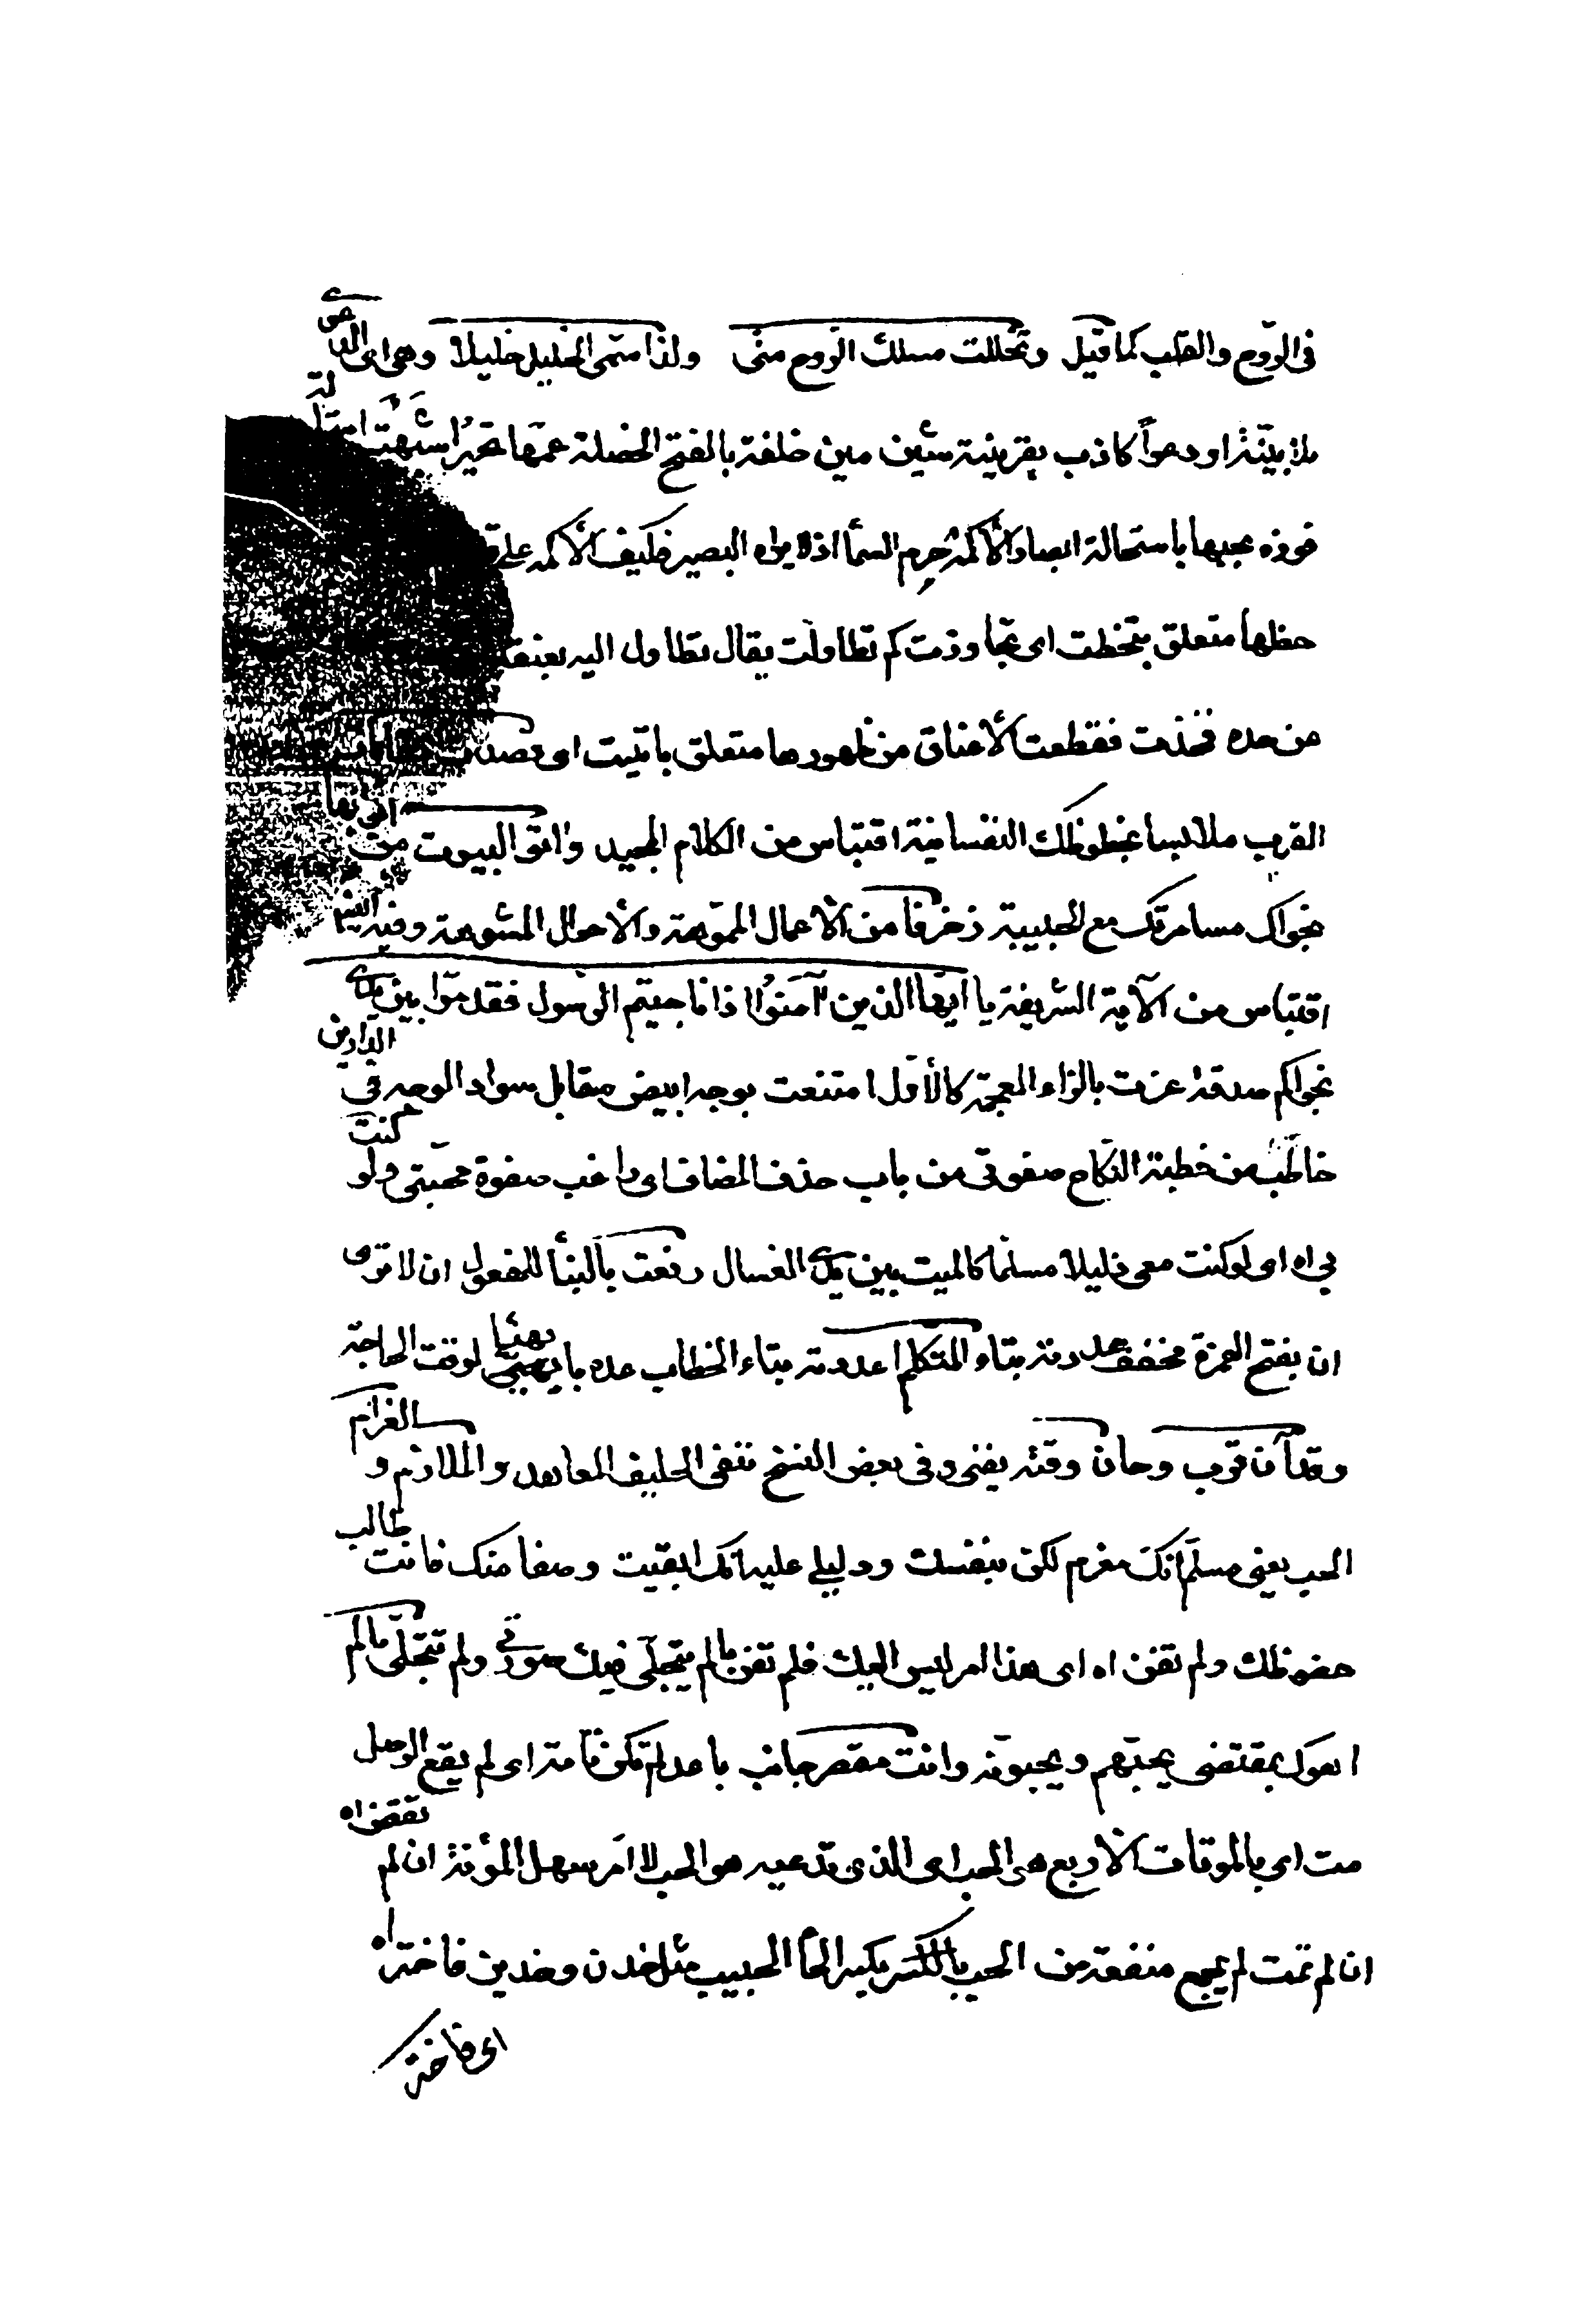 في الروح والقلب كما قيل وتخللت مسلك الروح مني ولذا سمى الخليل خليلا وهي اى الدعوى
بلا بينة او دعوا كاذب بقرينة شين مين خلفة بالفتح الخصلة عمها تحير اشبهت
فوزه بحبها باستحالة ابصار الأكمه جرم السمأ اذ لا يراه البصير فكيف الأكمه على
حظها متعلق بتخطت اى تجاوزت كم تطاولت يقال تطاول اليه بعنقه
من حده فجذت فقطعت الأعناق من ظهورها متعلق باتيت اى قصدت
القرب ملابسا بحظوظك النفسانية اقتباس من الكلام المجيد وأتوا البيوت من
نجواك مسامرتك مع الحبيبة زخرفا من الأعمال المموهة والأحوال المشوهة وفيه ايضا
اقتباس من الآية الشريفة يا ايها الذين آمنوا اذا ناجيتم الرسول فقدموا بين يدى
نجواكم صدقة عزت بالزاء المعجمة كالأول امتنعت بوجه ابيض مقابل سواد الوجه في الدارين
خاطب من خطبة النكاح صفوتي من باب حذف المضاف اى راغب صفوة محبتي ولو كنت
بي اه اى لو كنت معى ذليلا مسلما كالميت بين يدى الغسال رفعت بالبنأ للمفعول ان لا ترى
ان بفتح الهمزة مخفف عددته بتاء المتكلم اعددته بتاء الخطاب عده ما يهيئا لوقت الحاجة
وقد آن قرب وحان وقته يفنى وفى بعض النسخ تنفى الحليف المعاهد والملازم و الغرام
الحب يعنى مسلم انك مغرم لكن بنفسك ودليلى عليه انك ابقيت وصفا منك فانت طالب
حضوظك ولم تفن اه اى هذا امر ليس اليك فلم تفن ما لم يتجلى فيك صورتي ولم تتجلى ما لم
اهوك بمقتضى يحبهم ويحبونه وانت مقصر جانب باعد لم تكن فا مته اى لم يقع الوصل
مت اى بالموتات الأربع هى الحب اى الذى تدعيه هو الحب لا امر سهل المؤنة ان لم تقض اه
ان لم تمت لم يجمع منفعة من الحب بالكسر بكسر الحأ الحبيب مثل خدن وخدين فاختر اه
اى فاختر